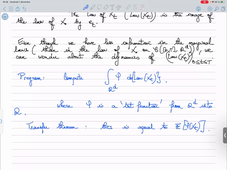 The law of X_t (Law(X_t)) is the image of
the law of X by e_t.
Even though we have less information in the marginal
laws ( than in the law of X on C([0,T], R^d) ), we
can wonder about the dynamics of (Law(X_t))_0≤t≤T.
Program: compute ∫_{R^d} φ dLaw(X_t)
where φ is a 'test function' from R^d into
R.
Transfer theorem: this is equal to E[φ(X_t)].